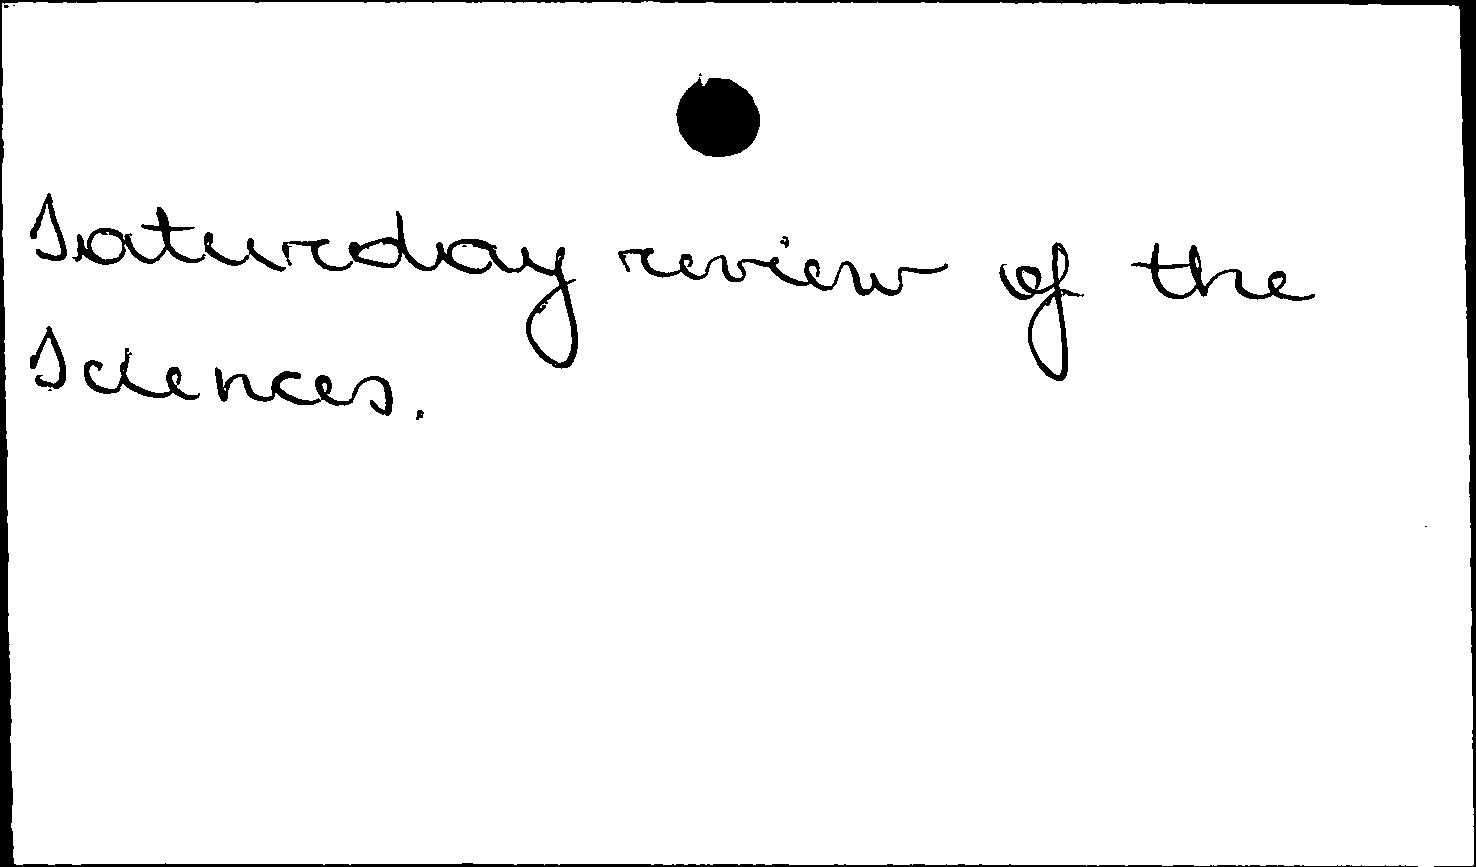 Saturday review of the
Sciences.